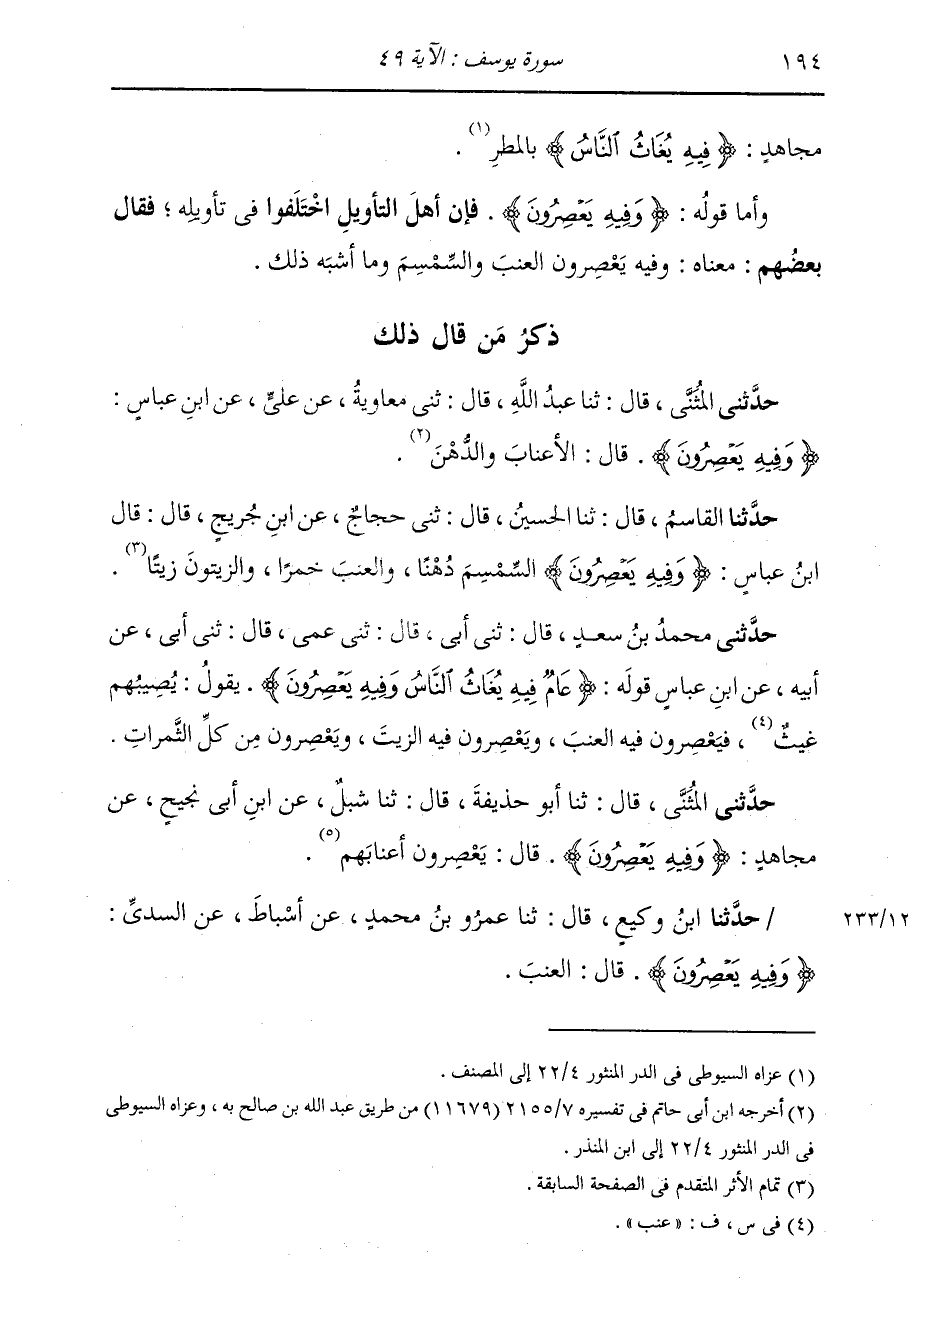 ١٩٤ سورة يوسف : الآية ٤٩
مجاهدٍ : ﴿ فِيهِ يُغَاثُ ٱلنَّاسُ ﴾ بالمطرِ(١) .
وأما قولُه : ﴿ وَفِيهِ يَعْصِرُونَ ﴾ . فإن أهلَ التأويلِ اخْتَلَفوا فى تأويلِه ؛ فقال
بعضُهم : معناه : وفيه يَعْصِرون العنبَ والسِّمْسِمَ وما أشبَه ذلك .
ذكرُ مَن قال ذلك
حدَّثنى المُثَنَّى ، قال : ثنا عبدُ اللَّهِ ، قال : ثنى معاويةُ ، عن علىٍّ ، عن ابنِ عباسٍ :
﴿ وَفِيهِ يَعْصِرُونَ ﴾ . قال : الأعنابَ والدُّهْنَ(٢) .
حدَّثنا القاسمُ ، قال : ثنا الحسينُ ، قال : ثنى حجاجٌ ، عن ابنِ جُريجٍ ، قال : قال
ابنُ عباسٍ : ﴿ وَفِيهِ يَعْصِرُونَ ﴾ السِّمْسِمَ دُهْنًا ، والعنبَ خمرًا ، والزيتونَ زيتًا(٣) .
حدَّثنى محمدُ بنُ سعدٍ ، قال : ثنى أبى ، قال : ثنى عمى ، قال : ثنى أبى ، عن
أبيه ، عن ابنِ عباسٍ قولَه : ﴿ عَامٌ فِيهِ يُغَاثُ ٱلنَّاسُ وَفِيهِ يَعْصِرُونَ ﴾ . يقولُ : يُصِيبُهم
غيثٌ(٤) ، فيَعْصِرون فيه العنبَ ، ويَعْصِرون فيه الزيتَ ، ويَعْصِرون مِن كلِّ الثَّمراتِ .
حدَّثنى المُثَنَّى ، قال : ثنا أبو حذيفةَ ، قال : ثنا شبلٌ ، عن ابنِ أبى نجيحٍ ، عن
مجاهدٍ : ﴿ وَفِيهِ يَعْصِرُونَ ﴾ . قال : يَعْصِرون أعنابَهم(٥) .
٢٣٣/١٢ / حدَّثنا ابنُ وكيعٍ ، قال : ثنا عمرُو بنُ محمدٍ ، عن أسْباطَ ، عن السدىِّ :
﴿ وَفِيهِ يَعْصِرُونَ ﴾ . قال : العنبَ .
(١) عزاه السيوطى فى الدر المنثور ٢٢/٤ إلى المصنف .
(٢) أخرجه ابن أبى حاتم فى تفسيره ٢١٥٥/٧ (١١٦٧٩) من طريق عبد الله بن صالح به ، وعزاه السيوطى
فى الدر المنثور ٢٢/٤ إلى ابن المنذر .
(٣) تمام الأثر المتقدم فى الصفحة السابقة .
(٤) فى س ، ف : « عنب » .